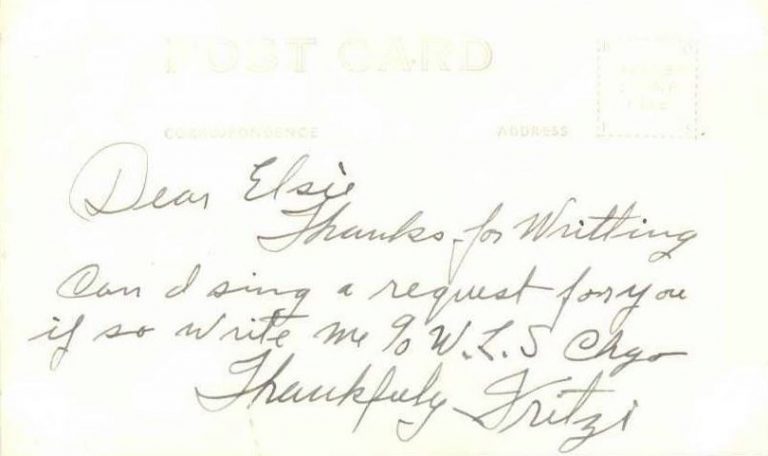 POST CARD
PLACE
STAMP
HERE
CORRESPONDENCE
ADDRESS
Dear Elsie
Thanks for Writting
Can I sing a request for you
if so write me c/o W.L.S Chgo
Thankfuly Fritzi